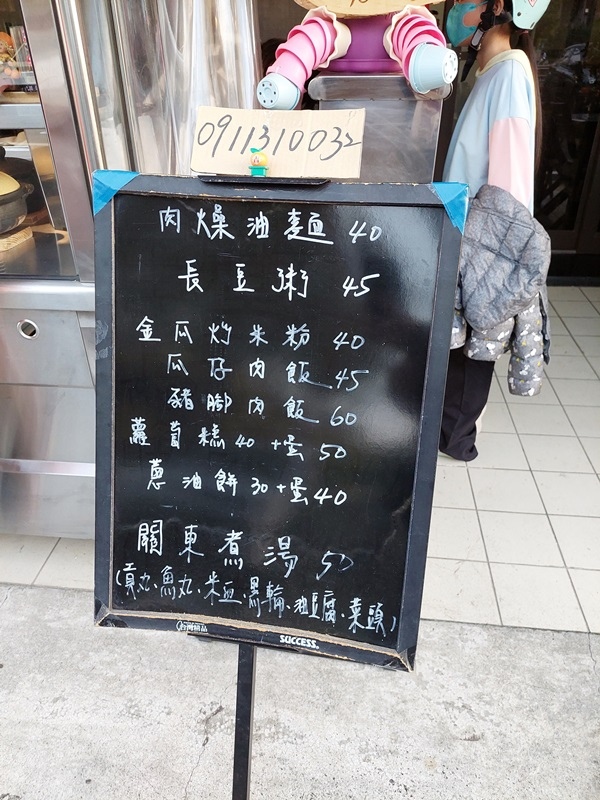 0911310032
肉燥油麵 40
長豆粥 45
金瓜炒米粉 40
瓜仔肉飯 45
豬腳肉飯 60
蘿蔔糕40 +蛋50
蔥油餅30+蛋40
關東煮湯 50
(貢丸、魚丸、米血、黑輪、油豆腐、菜頭)
SUCCESS.